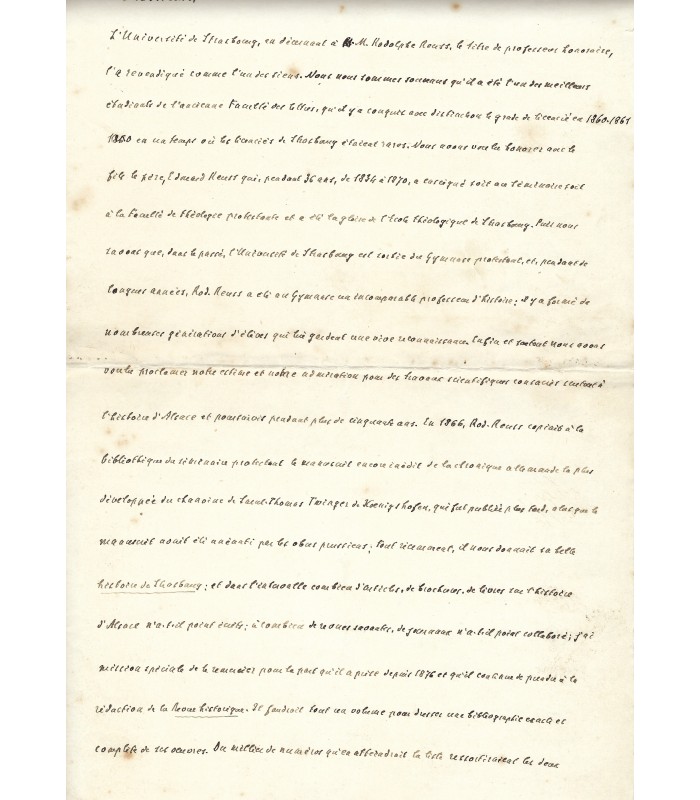 L'Université de Strasbourg, en décernant à M. Rodolphe Reuss, le titre de professeur honoraire,
l'a revendiqué comme l'un des siens. Nous nous sommes souvenus qu'il a été l'un des meilleurs
étudiants de l'ancienne Faculté des lettres, qu'il y a conquis avec distinction le grade de licencié en 1860-1861
en un temps où les licenciés de Strasbourg étaient rares. Nous avons voulu honorer avec le
fils le père, Edouard Reuss qui, pendant 36 ans, de 1834 à 1870, a enseigné soit au Séminaire soit
à la Faculté de théologie protestante et a été la gloire de l'école théologique de Strasbourg. Puis nous
savons que, dans le passé, l'Université de Strasbourg est sortie du Gymnase protestant, et, pendant de
longues années, Rod. Reuss a été au Gymnase un incomparable professeur d'histoire ; il y a formé de
nombreuses générations d'élèves qui lui gardent une vive reconnaissance. Enfin et surtout nous avons
voulu proclamer notre estime et notre admiration pour des travaux scientifiques consacrés surtout à
l'histoire d'Alsace et poursuivis pendant plus de cinquante ans. En 1866, Rod. Reuss copiait à la
bibliothèque du séminaire protestant le manuscrit encore inédit de la chronique allemande la plus
développée du chanoine de Saint-Thomas Twinger de Koenigshofen, qui fut publiée plus tard, alors que le
manuscrit avait été anéanti par les obus prussiens ; tout récemment, il nous donnait sa belle
histoire de Strasbourg ; et dans l'intervalle combien d'articles, de brochures, de livres sur l'histoire
d'Alsace n'a-t-il point écrits ; à combien de revues savantes, de journaux n'a-t-il point collaboré ; j'ai
mission spéciale de le remercier pour la part qu'il a prise depuis 1876 et qu'il continue de prendre à la
rédaction de la Revue historique. Il faudrait tout un volume pour dresser une bibliographie exacte et
complète de ses œuvres. Du millier de numéros qu'en atteindrait la liste ressortiraient les deux